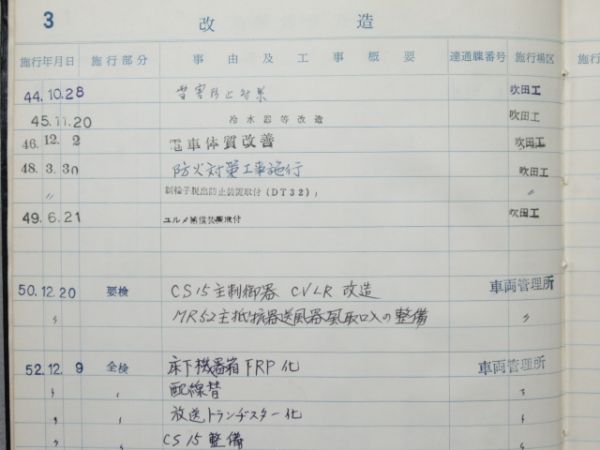 3 改造
施行年月日 施行部分 事由及工事概要 達通牒番号 施行場区 施行
44.10.28 雪害防止対策 吹田工
45.11.20 冷水器等改造 吹田工
46.12.2 電車体質改善 吹田工
48.3.30 防火対策工事施行 吹田工
〃 脱出防止装置取付(DT32) 〃
49.6.21 ユルメ補償装置取付 吹田工
50.12.20 要検 CS15主制御器 CVLR 改造 車両管理所
〃 MR52主抵抗器送風器風取口入の整備 〃
52.12.9 全検 床下機器箱FRP化 車両管理所
〃 〃 配線替 〃
〃 〃 放送トランヂスター化 〃
〃 〃 CS15整備 〃